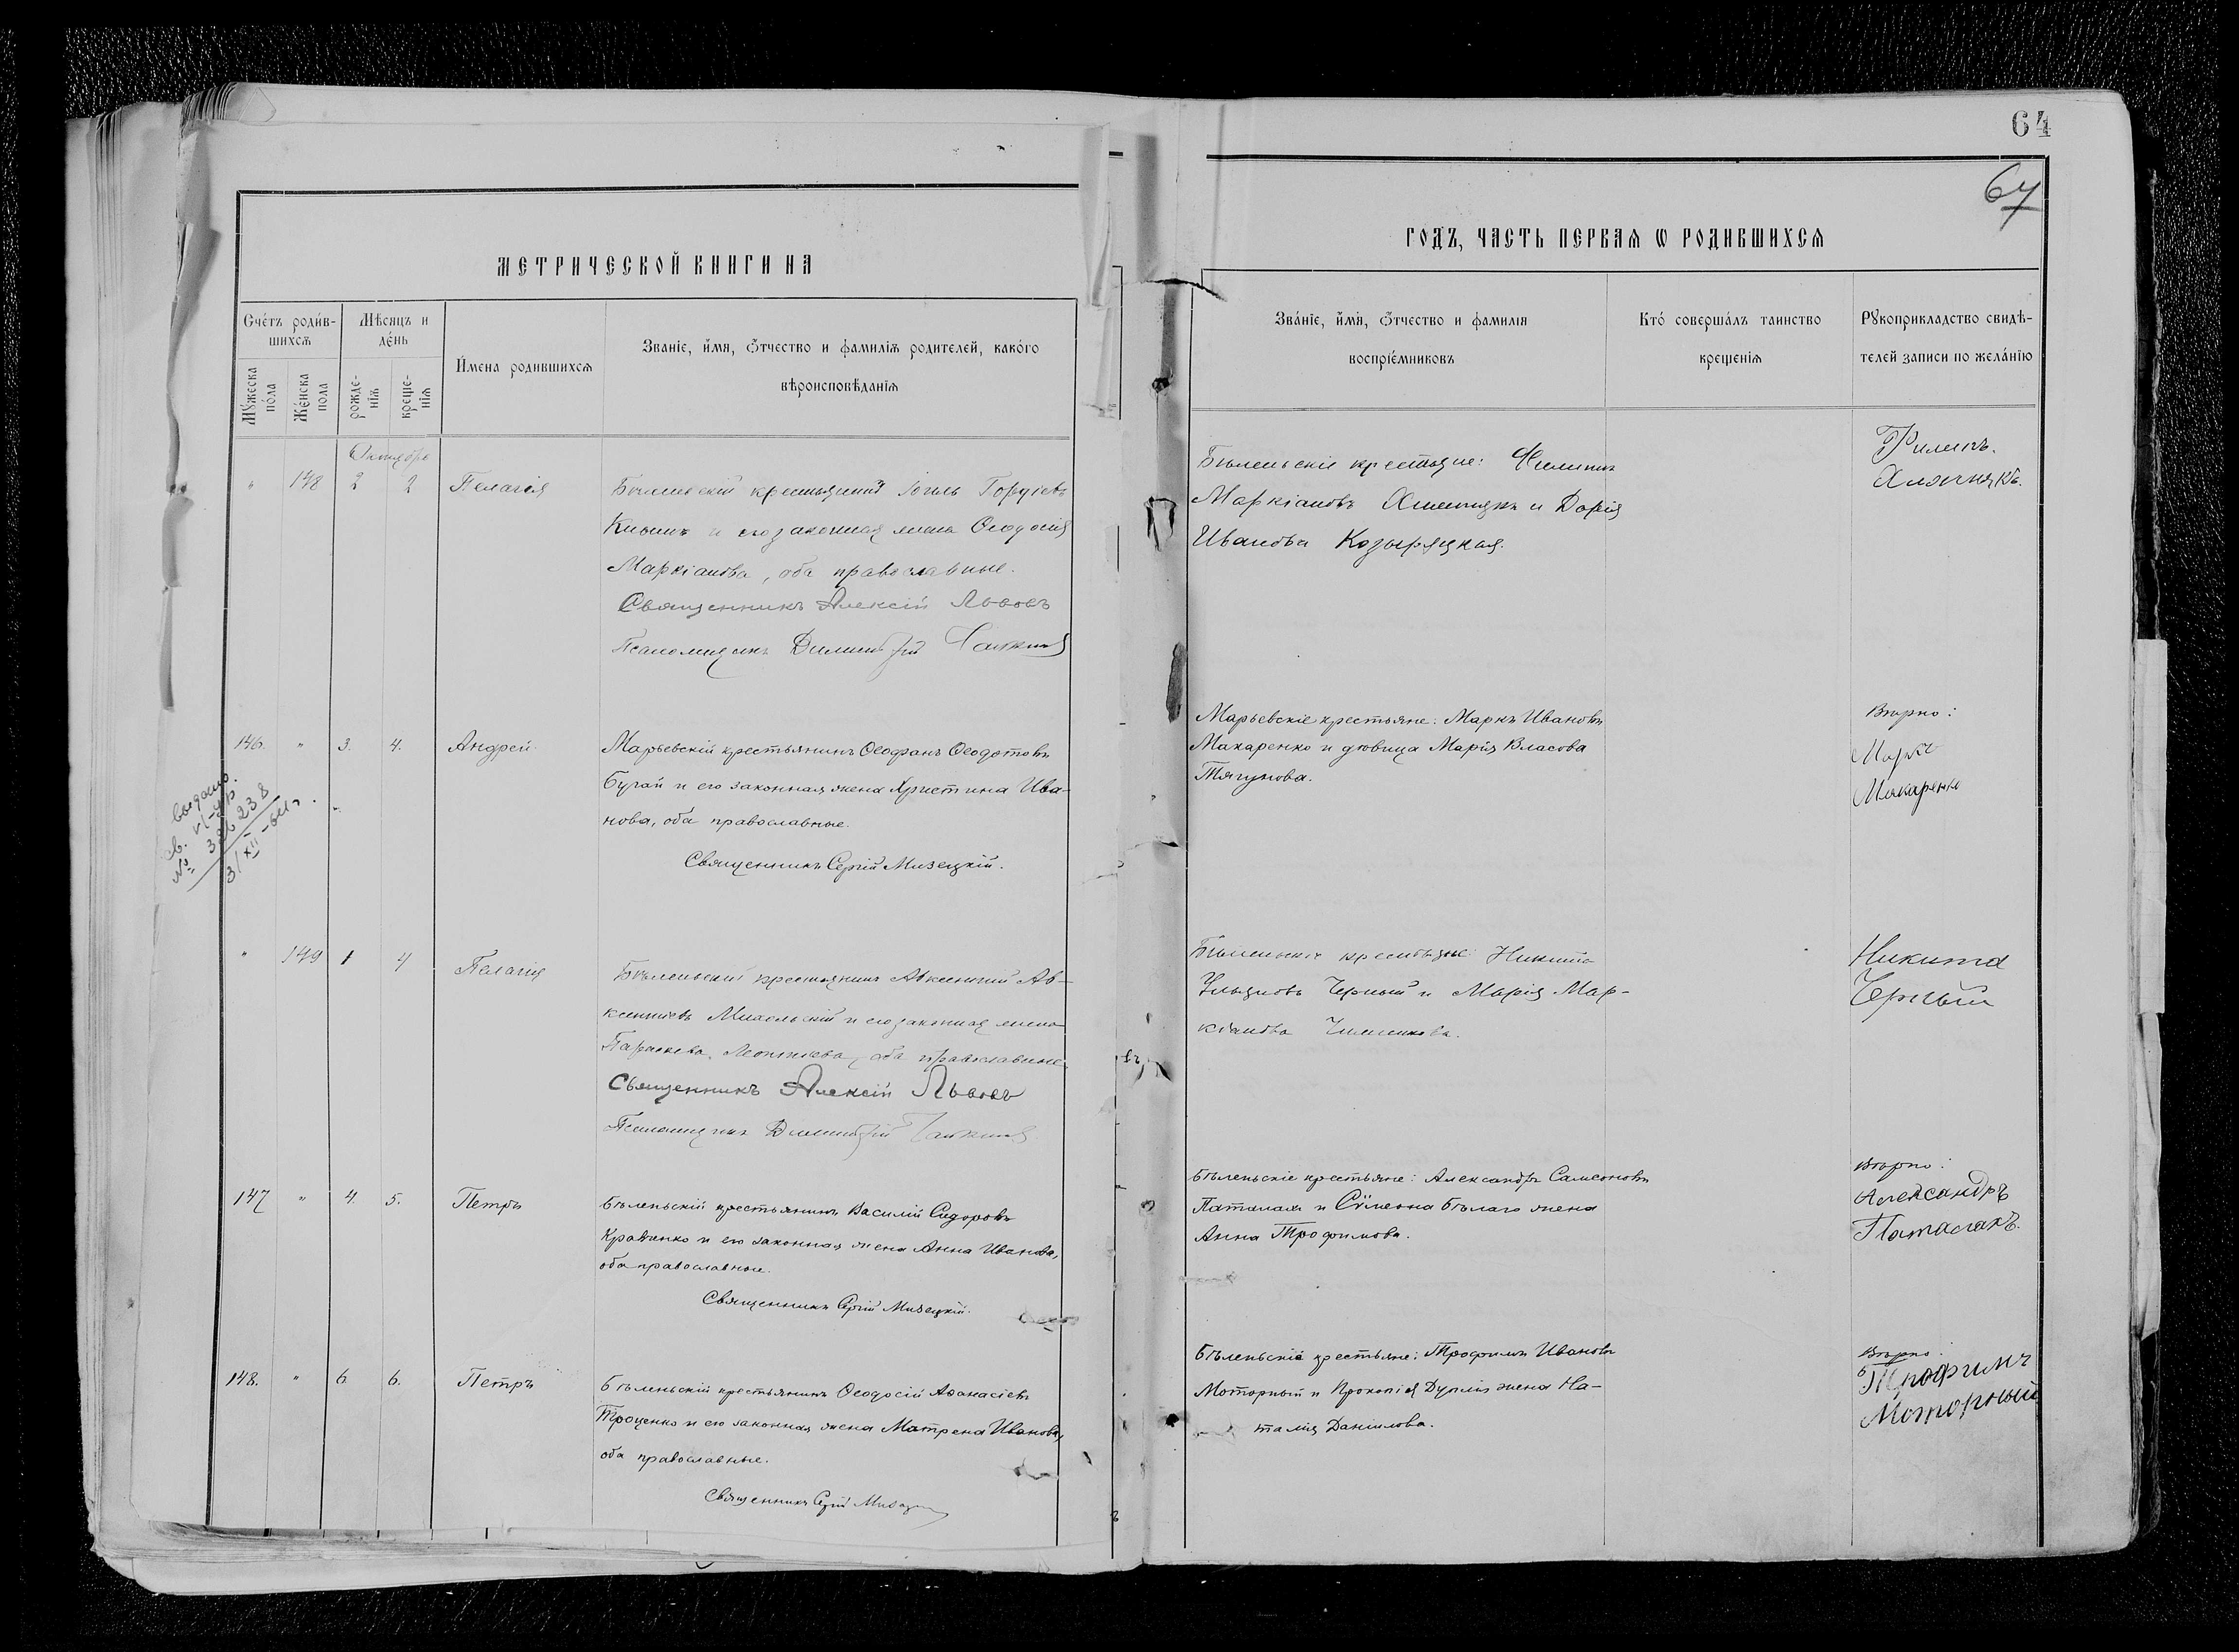 64
67
МЕТРИЧЕСКОЙ КНИГИ НА
ГОДЪ, ЧАСТЬ ПЕРВАѦ Ѡ РОДИВШИХСѦ
Счéтъ роди́в-
шихсѧ
Мꙋ́жеска
по́ла
Же́нска
пола
Мѣсяцъ и
де́нь
рожде-
нїѧ
креще-
нїѧ
И́мена родившихсѧ
Званїе, и́мя, ѻ́тчество и фамилїѧ родителей, како́го
вѣроисповѣданїѧ
Зва́нїе, и́мя, ѻ́тчество и фамилїя
воспрїе́мниковъ
Кто́ соверша́лъ таинство
крещенїѧ
Рꙋкоприкладство свидѣ-
телей записи по жела́нїю
Октябрь
" 148 2 2 Пелагія
крестьянинъ
и его законная жена Ѳеодосія
Маркіанова, оба православные.
Священникъ Алексій Львовъ
Псаломщикъ Димитрій
Бѣленьскіе крестьяне: Филиппъ
Маркіановъ и Дарія
Иванова Козыряцкая.
Филипъ.
146. " 3. 4. Андрей
Марьевскій крестьянинъ Ѳеофанъ Ѳеодотовъ
Бугай и его законная жена Христина Ива-
нова, оба православные.
Священникъ Сергій Мизецкій.
Марьевскіе крестьяне: Маркъ Ивановъ
Макаренко и дѣвица Марія Власова
Тягунова.
Вѣрно:
Маркъ
Макаренко
№ 326238
" 149 1 4 Пелагія
Бѣленьскій крестьянинъ Авксентій Ав-
ксентіевъ и его законная жена
Параскева Леонтіева, оба православные
Священникъ Алексій Львовъ
Псаломщикъ Димитрій
Бѣленьскіе крестьяне: Никита
Ульяновъ Черный и Марія Мар-
кіанова
Никита
Черный
147 " 4. 5. Петръ
Бѣленьскій крестьянинъ Василій Сидоровъ
Кравченко и его законная жена Анна Иванова,
оба православные.
Священникъ Сергій Мизецкій.
Бѣленьскіе крестьяне: Александръ Самсоновъ
Паталахъ и Сѷмеона Бѣлаго жена
Анна Трофимова.
Вѣрно:
Александръ
Паталахъ.
148. " 6. 6. Петръ
Бѣленьскій крестьянинъ Ѳеодосій Аѳанасіевъ
Троценко и его законная жена Матрена Иванова,
оба православные.
Священникъ Сергій Мизецкій
Бѣленьскіе крестьяне: Трофимъ Ивановъ
Моторный и Прокопія жена На-
талія Даніилова.
Вѣрно:
Трофимъ
Моторный